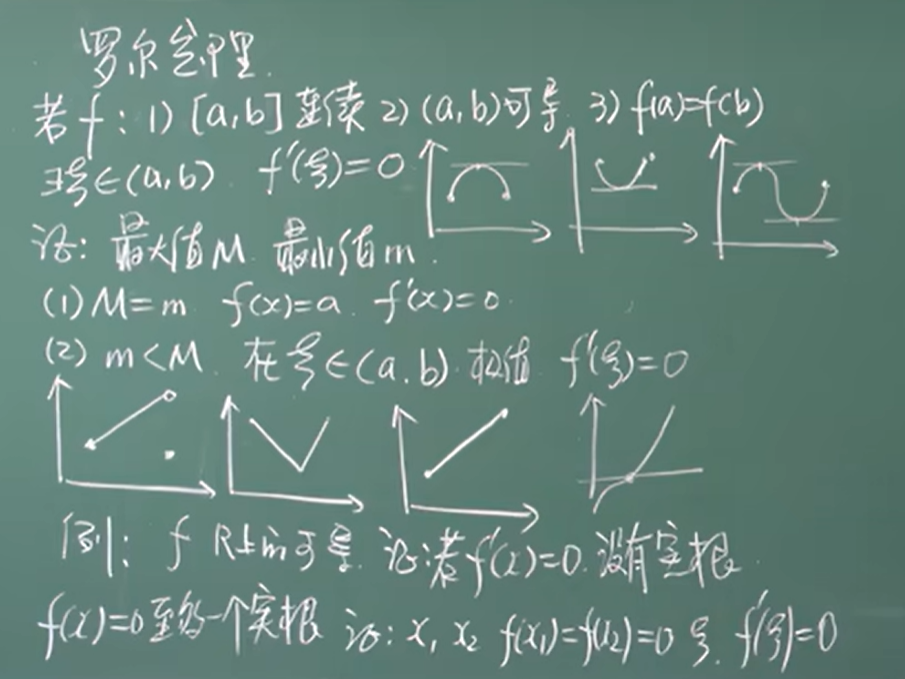 罗尔定理
若f: 1) [a,b] 连续 2) (a,b)可导 3) f(a)=f(b)
∃ξ∈(a,b) f'(ξ)=0
证: 最大值M 最小值m.
(1) M=m f(x)=a f'(x)=0
(2) m<M 在ξ∈(a.b) 极值 f'(ξ)=0
例: f R上的可导 证:若f'(x)=0 没有实根
f(x)=0至多一个实根 证: x₁ x₂ f(x₁)=f(x₂)=0 ξ f'(ξ)=0